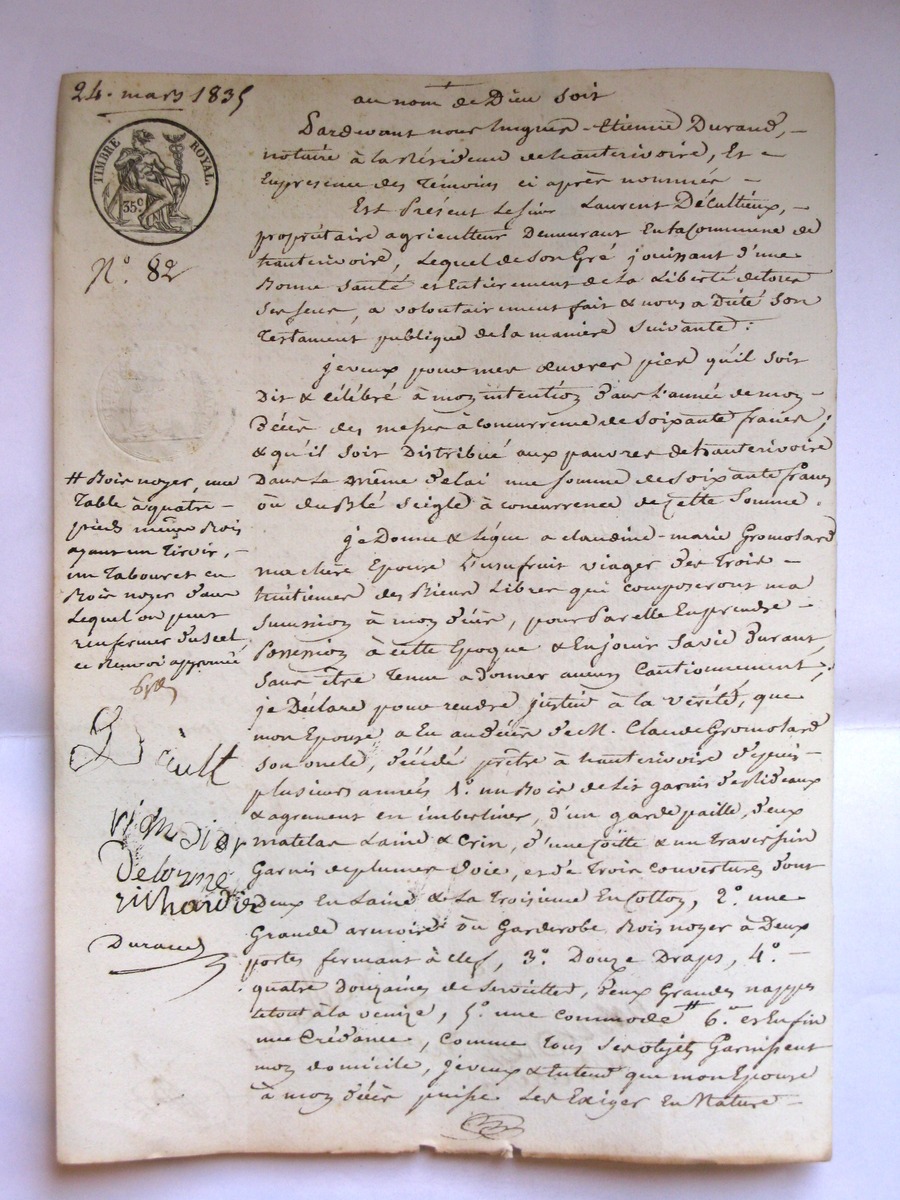 24. mars 1835
TIMBRE ROYAL.
35 c
N.o 82
au nom de Dieu soit
Pardevant nous hugues-Etienne Durand,
notaire à la Résidence de hauterivoire, Et
En presence des Témoins ci après nommés
Est Présent Le sieur Laurent Décultieux,
propriétaire agriculteur Demeurant En la Commune de
hauterivoire, Lequel de Son Gré jouissant d'une
Bonne Santé et Entierement de la Liberté de tous
Ses sens, a volontairement fait & nous a Dicté Son
Testament publique de la maniere Suivante :
je veux pour mes œuvres pies qu'il soit
Dit & célébré à mon intention Dans L'année de mon
Décès des messes à concurrence de Soixante francs ;
& qu'il soit Distribué aux pauvres de hauterivoire
Dans Le même délai une somme de Soixante francs
ou du Blé seigle à concurrence de Cette Somme.
je Donne & Légue a claudine-marie Gromolard
ma chere Epouse L'usufruit viager des Trois
huitiemes des Biens Libres qui composeront ma
Succession à mon décès, pour Par elle En prendre
Possession à cette Epoque & En jouir Sa vie Durant,
Sans être Tenue à donner aucun Cautionnement,
je Déclare pour rendre justice à la vérité, que
mon Epouse a Eu au décès de M. Claude Gromolard
son oncle, décédé prêtre à hauterivoire depuis
plusieurs années 1.o un Bois de Lit garni de Rideaux
& agrement en imberline, d'un garde paille, deux
matelas Laine & Crin, d'une Coïtte & un Traversin
Garnis de plumes d'oie, et de Trois couvertures dont
Deux En Laine & La Troisieme En Cotton, 2.o une
Grande armoire ou Garderobe Bois noyer à Deux
portes fermant à clef, 3.o Douze Draps, 4.o
quatre Douzaines de Serviettes, deux Grandes nappes
le tout à la venize, 5.o une commode # 6.o et Enfin
une Crédance, Comme Tous Ses objets Garnissent
mon domicile, je veux & Entend que mon Epouse
à mon décès puisse Les Exiger En Nature
# Bois noyer, une
Table à quatre
pieds même Bois
ayant un Tiroir,
un Tabouret en
Bois noyer dans
Lequel on peut
renfermer du Sel
ce Renvoi approuvé
Décult
vignoier
Delorme
richardier
Durand